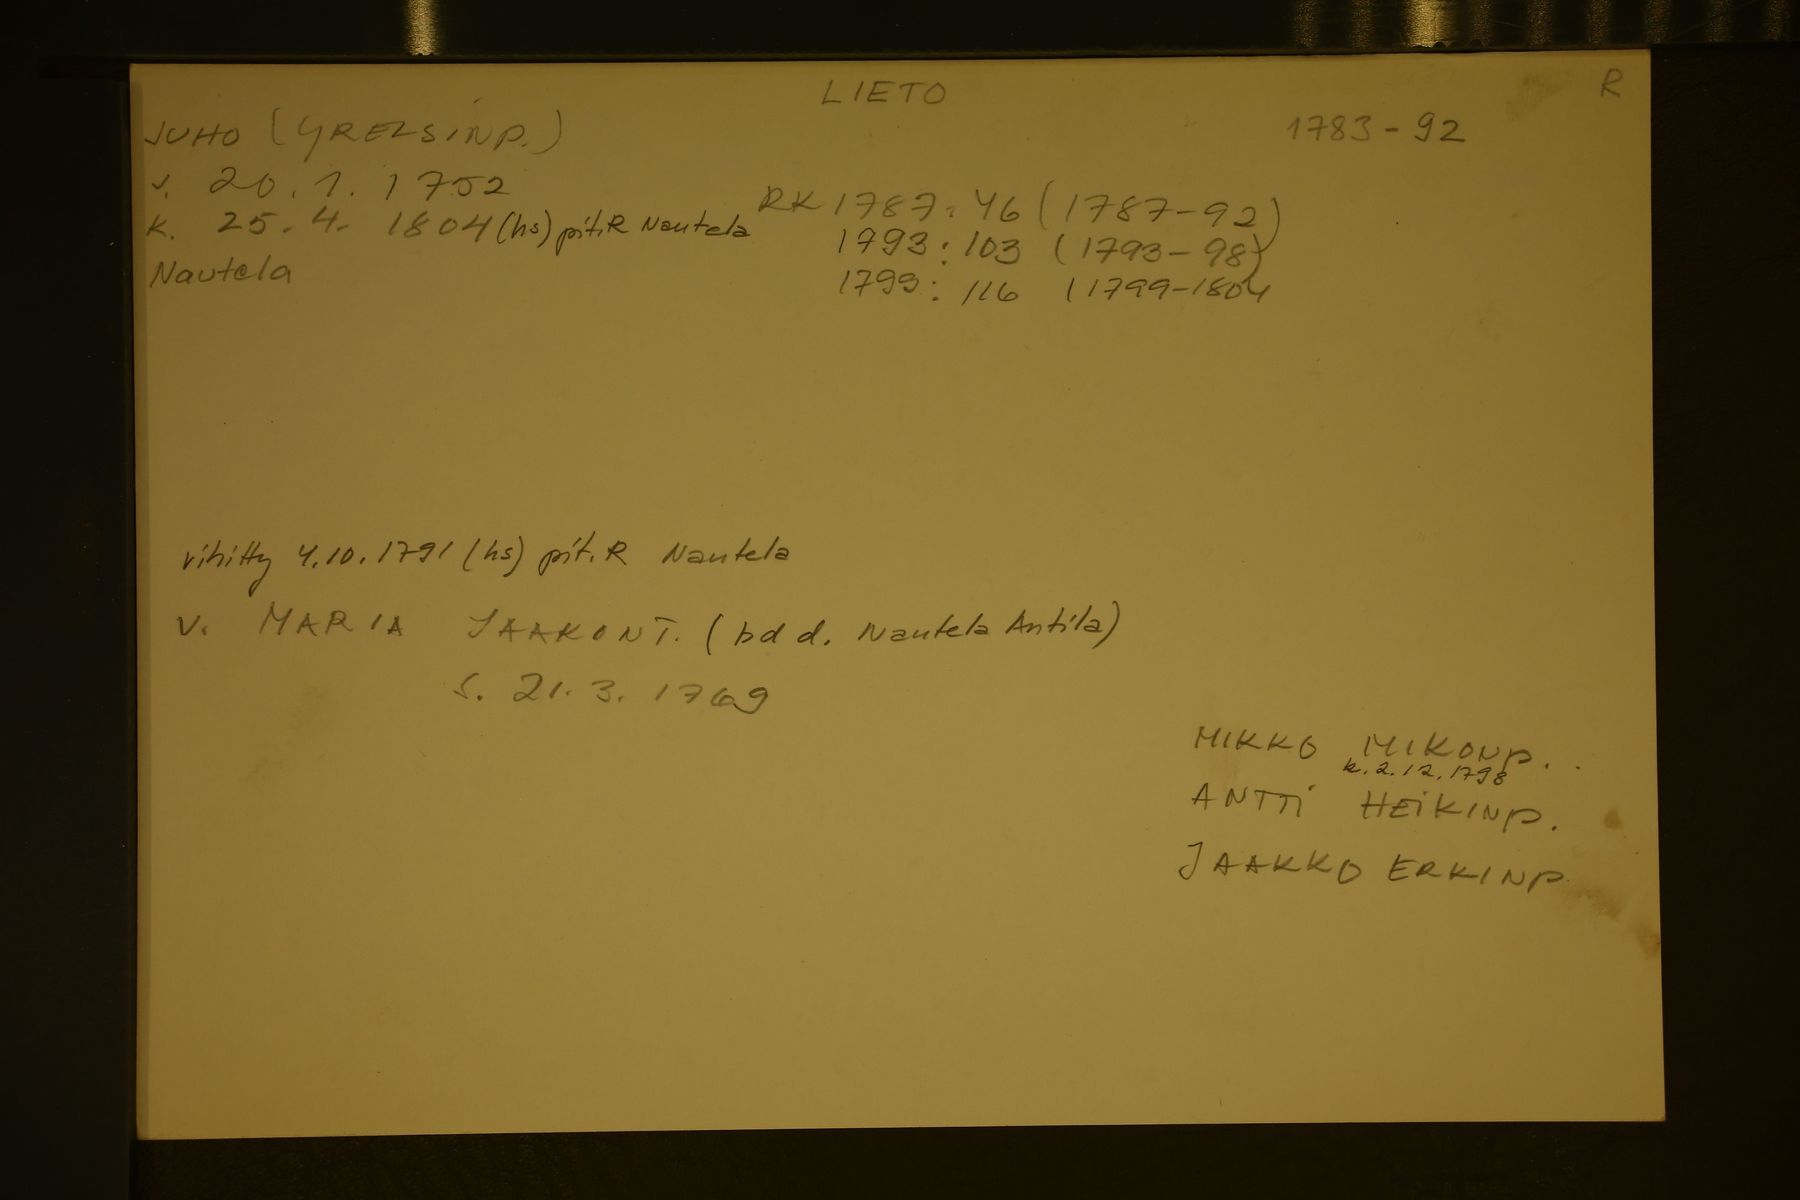 LIETO
R
JUHO (YRELSINP.)
1783-92
s. 20.1.1752
k. 25.4. 1804 (hs) pit.R Nautela
Nautela
RK 1787:46 (1787-92)
1793:103 (1793-98)
1799:116 (1799-1804
vihitty 4.10.1791 (hs) pit.R Nautela
V. MARIA JAAKONT. (bd d. Nautela Antila)
s. 21.3.1769
MIKKO MIKONP..
k.2.12.1798
ANTTI HEIKINP.
JAAKKO ERKINP.